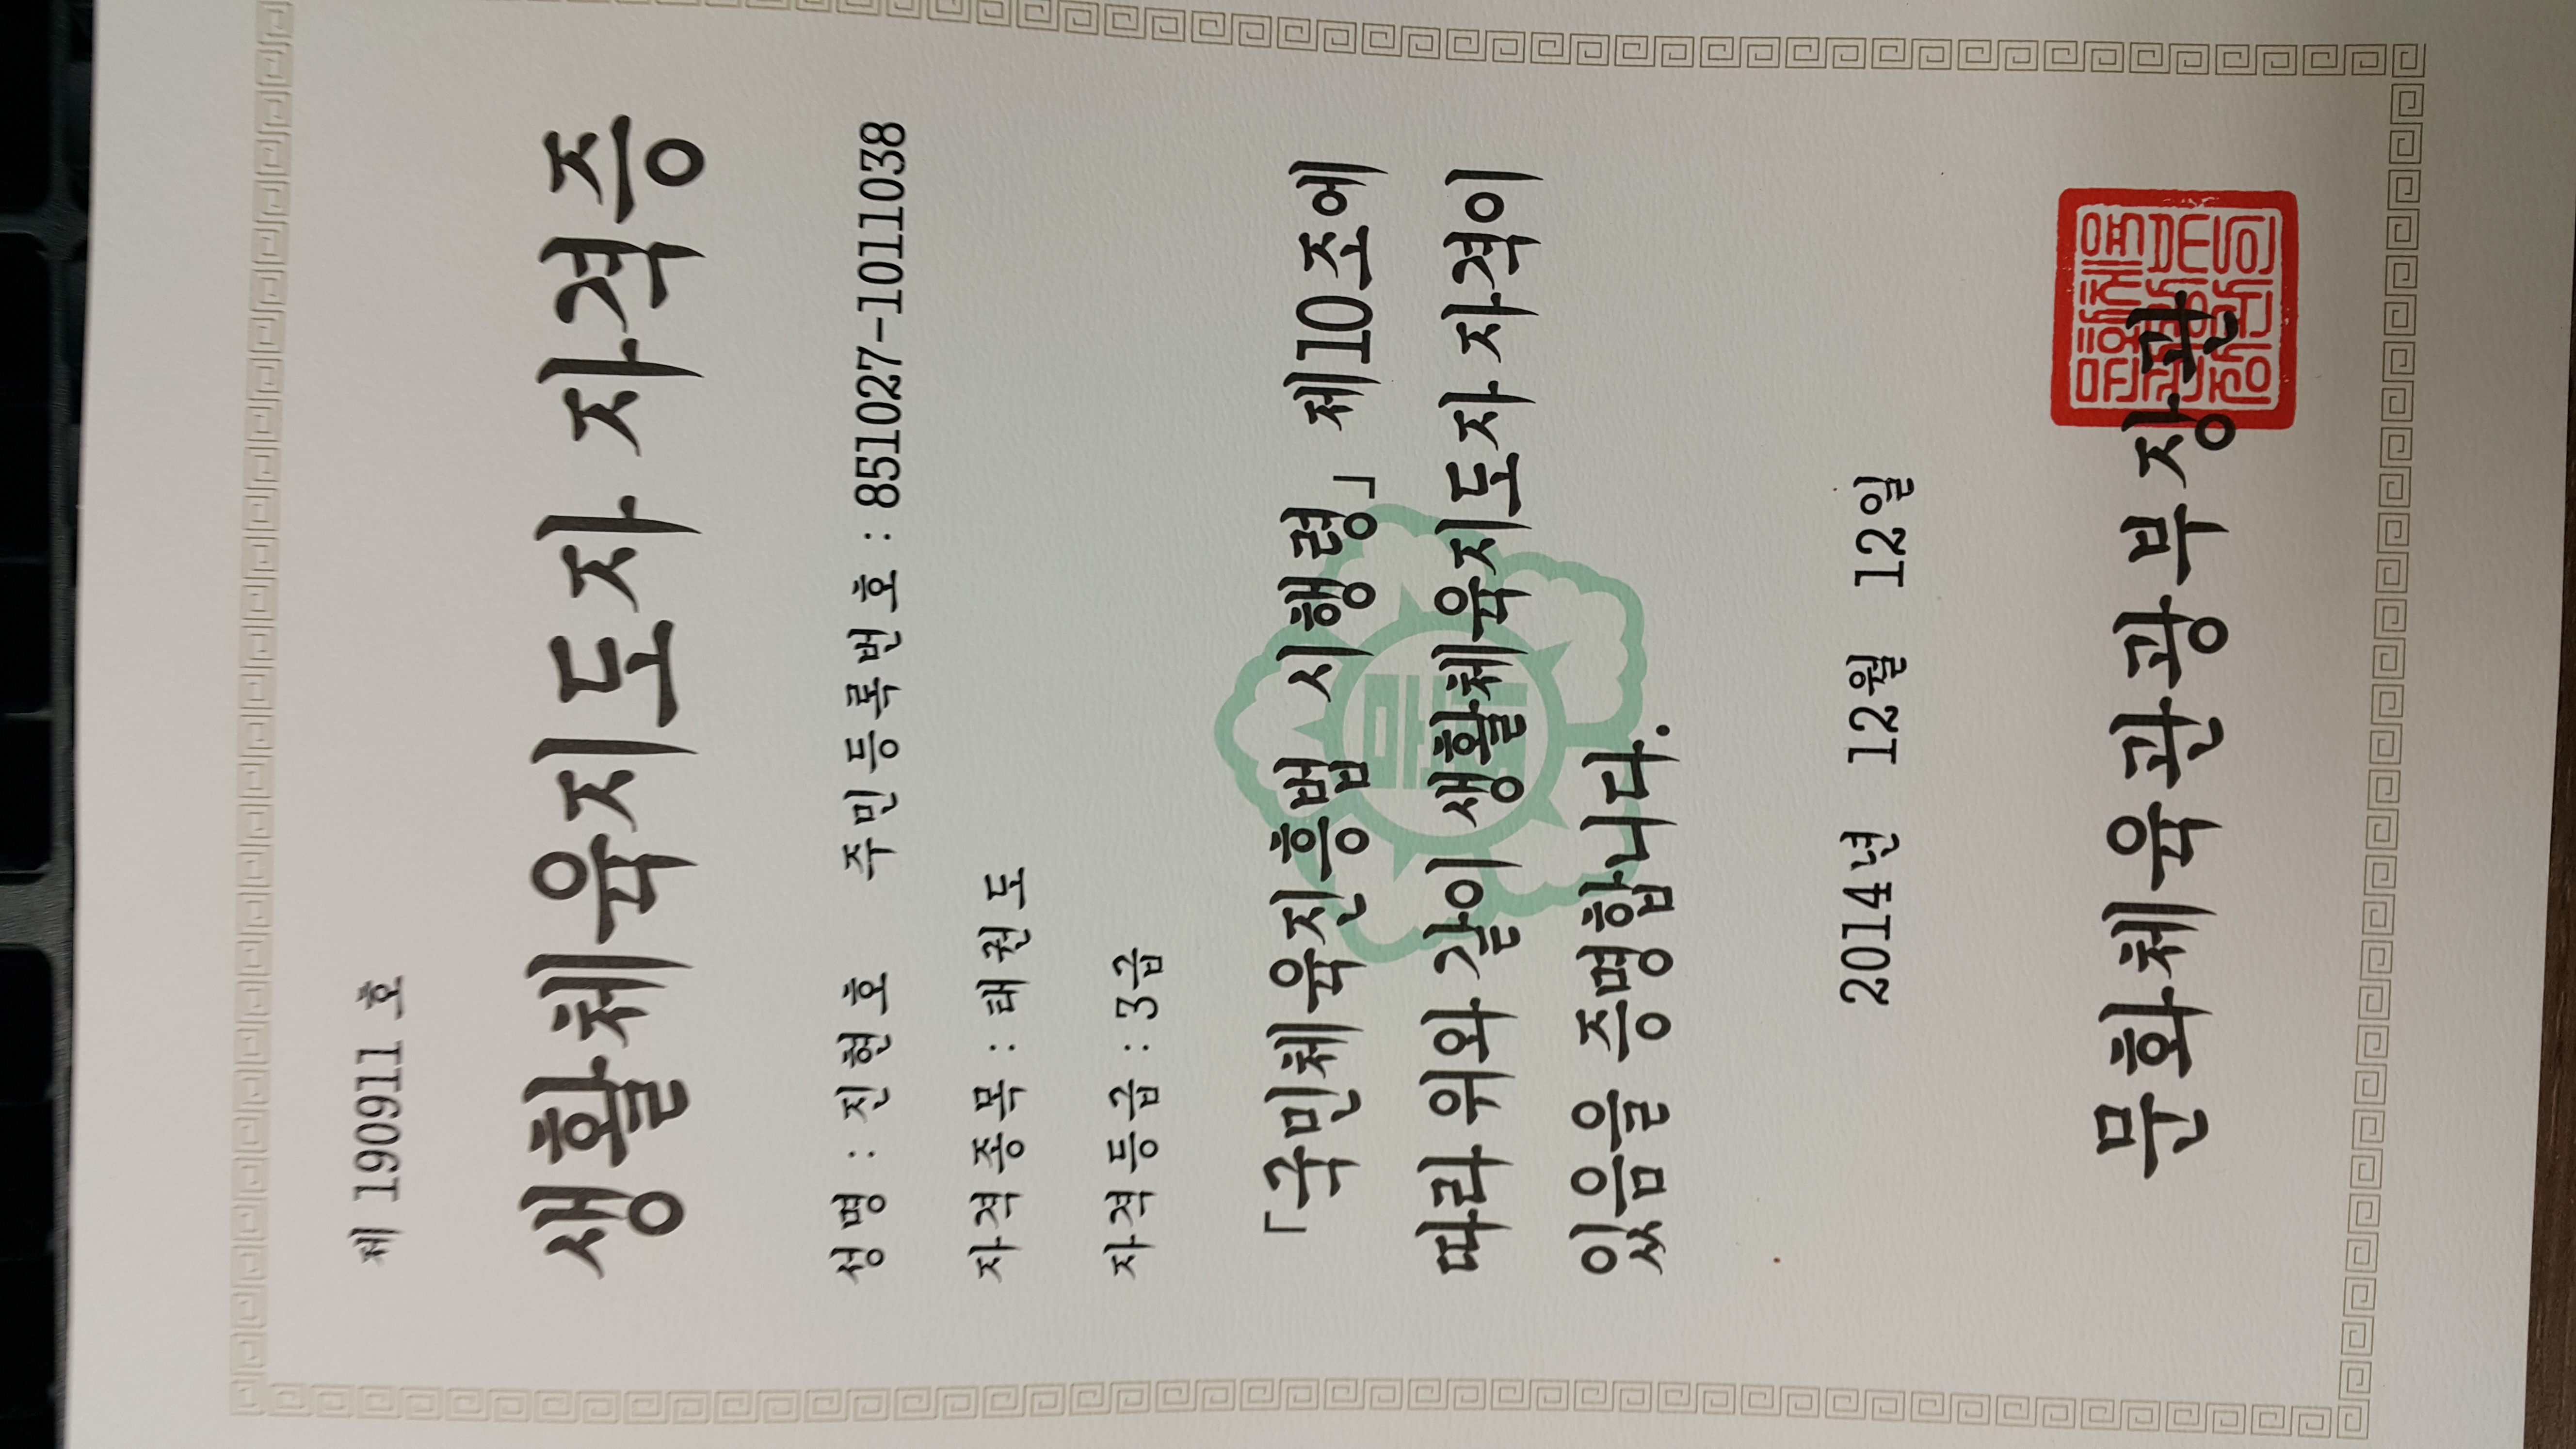 제 190911 호
생활체육지도자 자격증
성 명 : 진 현 호 주 민 등 록 번 호 : 851027-1011038
자 격 종 목 : 태 권 도
자 격 등 급 : 3 급
「국민체육진흥법 시행령」 제10조에
따라 위와 같이 생활체육지도자 자격이
있음을 증명합니다.
2014년 12월 12일
문화체육관광부장관